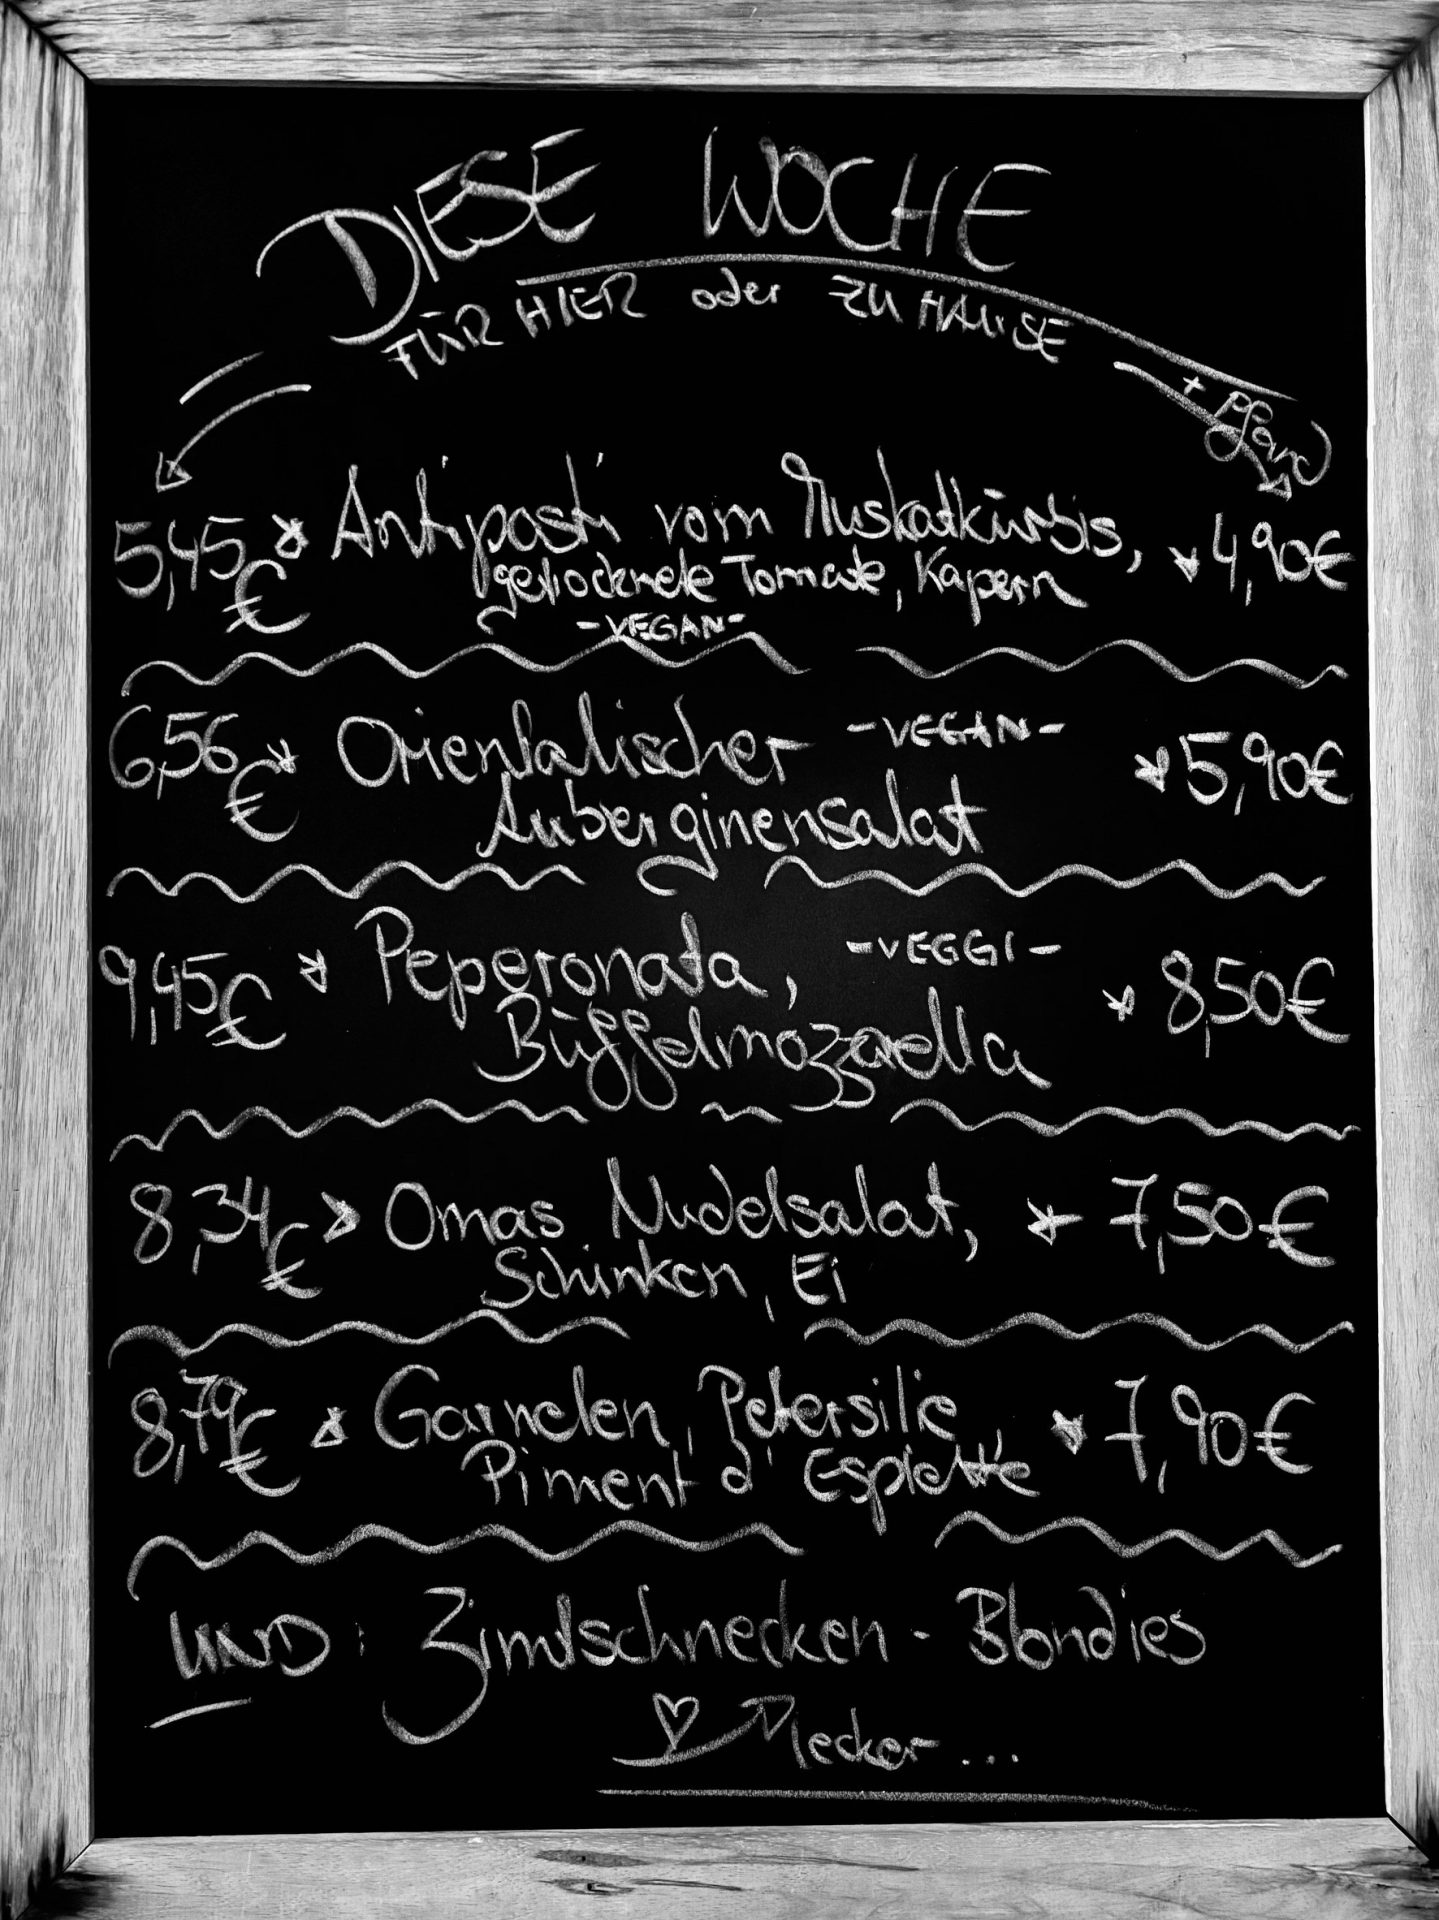 DIESE WOCHE
FÜR HIER oder ZU HAUSE
+ Pfand
5,45 € Antipasti vom Muskatkürbis, 4,90€
getrocknete Tomate, Kapern
-VEGAN-
6,56 € Orientalischer -VEGAN- 5,90€
Auberginensalat
9,45€ Peperonata, -VEGGI- 8,50€
Büffelmozzarella
8,34 € Omas Nudelsalat, 7,50€
Schinken, Ei
8,79€ Garnelen, Petersilie 7,90€
Piment d'Esplette
UND: Zimtschnecken - Blondies
lecker...